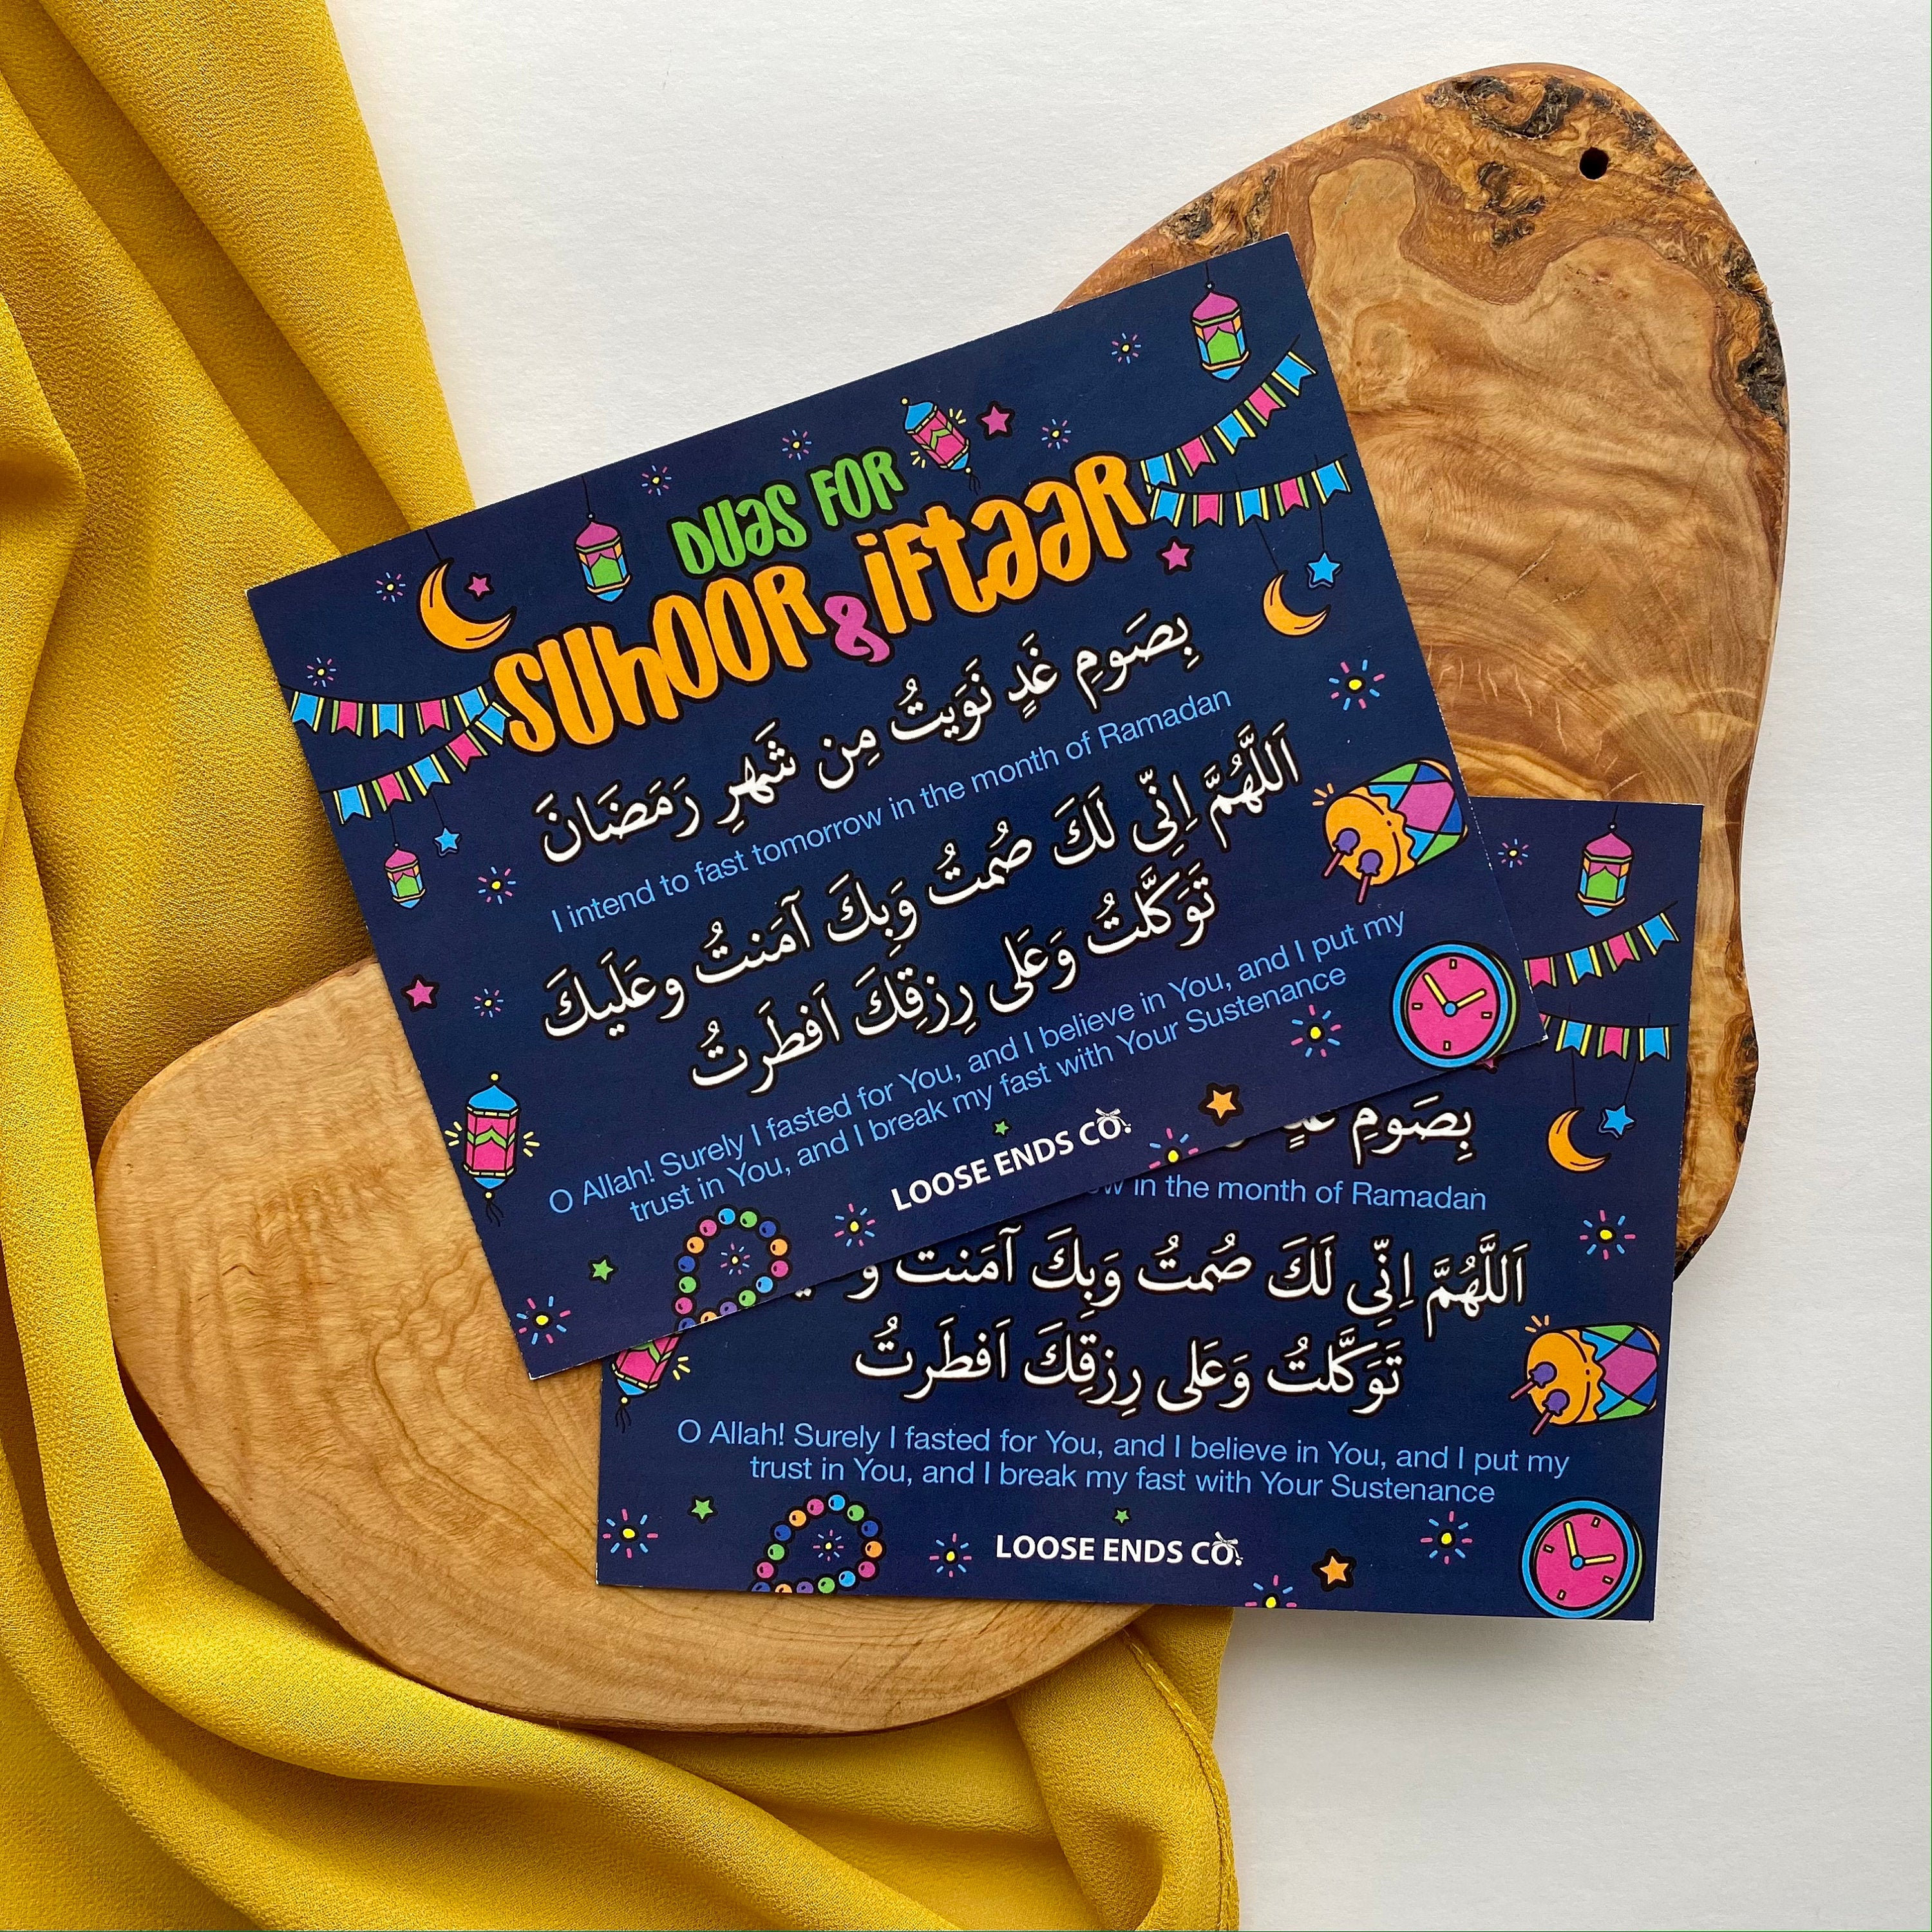 DUAS FOR
SUHOOR & IFTAAR
بِصَومِ غَدٍ نَوَيتُ مِن شَهرِ رَمَضَانَ
I intend to fast tomorrow in the month of Ramadan
اَللَّهُمَّ اِنِّى لَكَ صُمتُ وَبِكَ آمَنتُ وعَلَيكَ
تَوَكَّلتُ وَعَلى رِزقِكَ اَفطَرتُ
O Allah! Surely I fasted for You, and I believe in You, and I put my
trust in You, and I break my fast with Your Sustenance
LOOSE ENDS CO.
بِصَومِ
in the month of Ramadan
اَللَّهُمَّ اِنِّى لَكَ صُمتُ وَبِكَ آمَنتُ
تَوَكَّلتُ وَعَلى رِزقِكَ اَفطَرتُ
O Allah! Surely I fasted for You, and I believe in You, and I put my
trust in You, and I break my fast with Your Sustenance
LOOSE ENDS CO.